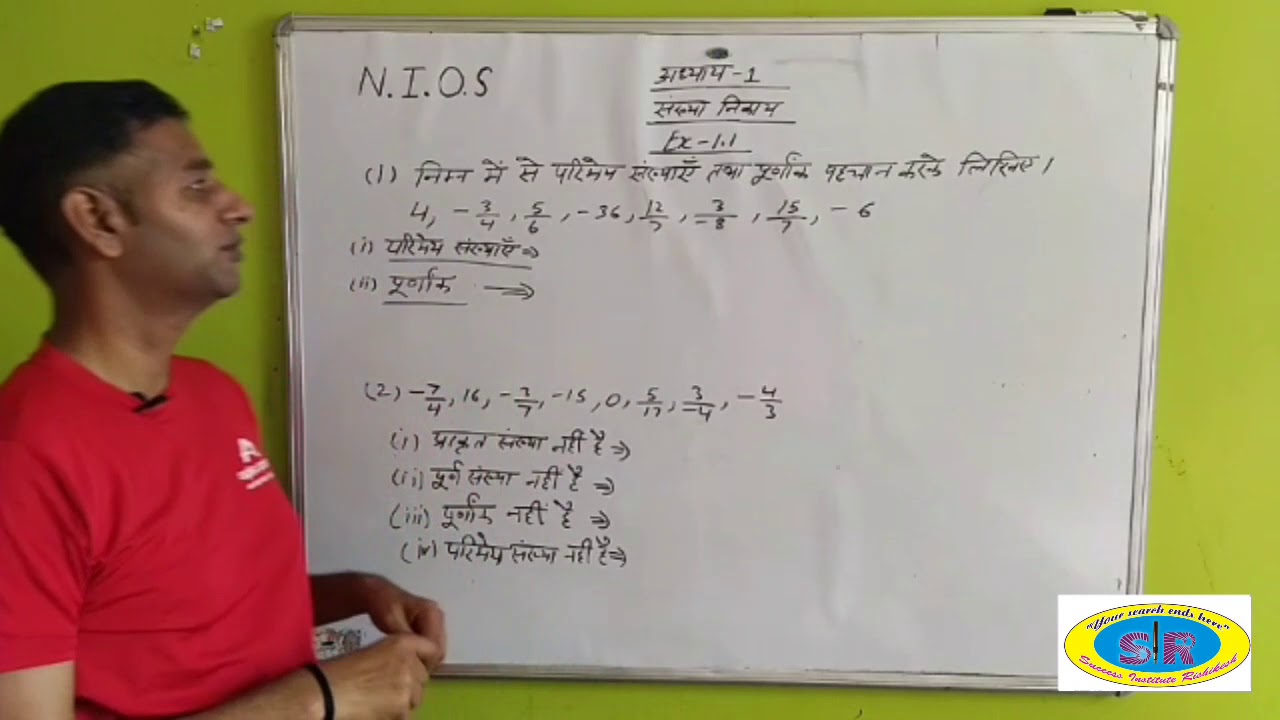 N.I.O.S
अध्याय-1
संख्या निकाय
Ex-1.1
(1) निम्न में से परिमेय संख्याएँ तथा पूर्णांक पहचान करके लिखिए।
4, -3/4, 5/6, -36, 12/7, 3/-8, 15/7, -6
(i) परिमेय संख्याएँ ⇒
(ii) पूर्णांक →
(2) -7/4, 16, -3/7, -15, 0, 5/17, 3/-4, -4/3
(i) प्राकृत संख्या नहीं है ⇒
(ii) पूर्ण संख्या नहीं है ⇒
(iii) पूर्णांक नहीं है ⇒
(iv) परिमेय संख्या नहीं है ⇒
"Your search ends here"
S R
Success Institute Rishikesh